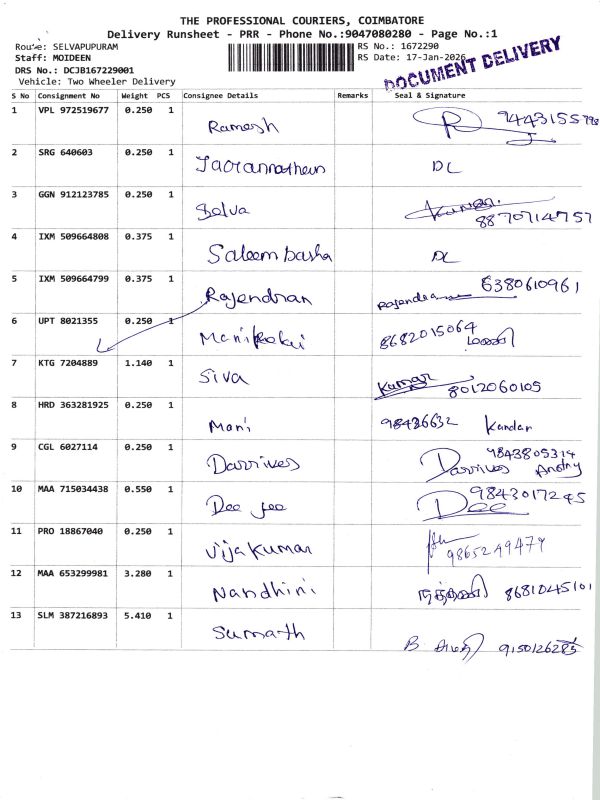 THE PROFESSIONAL COURIERS, COIMBATORE
Delivery Runsheet - PRR - Phone No.:9047080280 - Page No.:1
Route: SELVAPUPURAM
RS No.: 1672290
Staff: MOIDEEN
RS Date: 17-Jan-2026
DRS No.: DCJB167229001
Vehicle: Two Wheeler Delivery
DOCUMENT DELIVERY
S No Consignment No Weight PCS Consignee Details Remarks Seal & Signature
1 VPL 972519677 0.250 1 Ramesh 9443155
2 SRG 640603 0.250 1 DL
3 GGN 912123785 0.250 1 Selva Kumar
8870714757
4 IXM 509664808 0.375 1 Saleem basha DL
5 IXM 509664799 0.375 1 Rajendran Rajendran 6380610961
6 UPT 8021355 0.250 1 8682015064
7 KTG 7204889 1.140 1 Siva Kumar 8012060105
8 HRD 363281925 0.250 1 Mani 98436632 Kandan
9 CGL 6027114 0.250 1 Darrives 9843805314
Darrives Antony
10 MAA 715034438 0.550 1 Dee Jee 9843017245
Dee
11 PRO 18867040 0.250 1 Vijakumar 9865249479
12 MAA 653299981 3.280 1 Nandhini 8681045101
13 SLM 387216893 5.410 1 Sumath B 9150126285